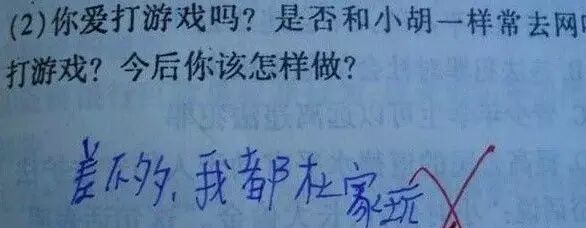 (2)你爱打游戏吗？是否和小胡一样常去网
打游戏？今后你该怎样做？
差不多,我都在家玩